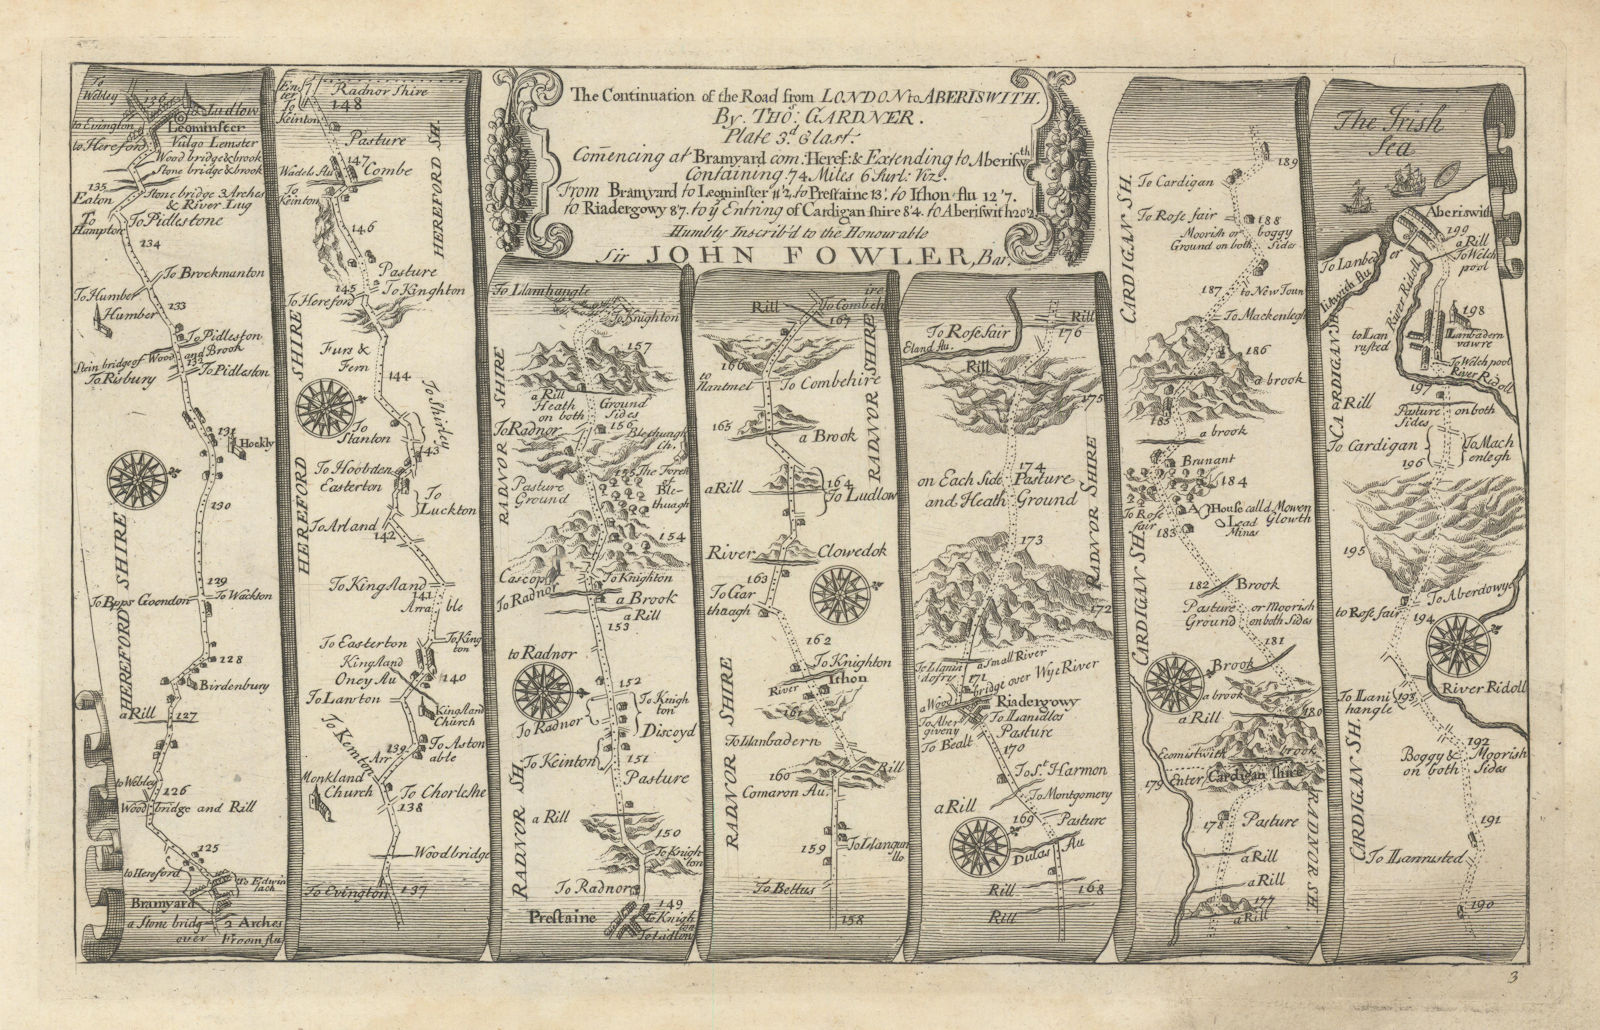 The Continuation of the Road from LONDON to ABERISWITH.
By THO.s GARDNER.
Plate 3.d & last.
Com̄encing at Bramyard com: Heref: & Extending to Aberiswth
Containing 74 Miles 6 Furl: Viz.
From Bramyard to Leominster 11'2, to Prestaine 13', to Ithon flu 12'7.
to Riadergowy 8'7. to ye Entring of Cardigan shire 8'4. to Aberiswith 20'2
Humbly Inscrib'd to the Honourable
Sir JOHN FOWLER, Bar.
To Webley
136
to Ludlow
to Evington
Leominster
Vulgo Lemster
to Hereford
Wood bridge & brook
Stone bridge & brook
135
Eaton
Stone bridge 3 Arches
& River Lug
To Hampton
To Pidlestone
134
To Brockmanton
To Humber
133
Humber
To Pidleston
Stein bridge of Wood and Brook
132
To Risbury
To Pidleston
131
Hockly
130
HEREFORD SHIRE
129
To Bpps Goendon
To Wackton
128
Birdenbury
a Rill
127
to Webley
126
Wood bridge and Rill
125
to Hereford
to Edwin lach
Bramyard
a Stone bridg 2 Arches
over Froom flu
Enter
To Keinton
Radnor Shire
148
Pasture
HEREFORD SH.
147
Wadels flu
Combe
To Keinton
146
Pasture
To Kinghton
145
To Hereford
Furs &
Fern
144
HEREFORD SHIRE
To Stanton
To Shirley
143
To Hoobden
Easterton
To Luckton
To Arland
142
To Kingsland
141
Arra ble
To Easterton
To King ton
Kingsland
Oney flu
140
To Lawton
Kingsland
Church
To Kemton
139
To Aston
Arr able
Monkland
Church
To Chorleshe
138
Woodbridge
To Evington
137
To Llamhangle
To Knighton
157
a Rill
Heath Ground
on both Sides
To Radnor
156
Blethuagh Ch.
RADNOR SHIRE
155
The Forest
of Ble-
thuagh
Pasture
Ground
154
Cascop
To Knighton
To Radnor
a Brook
a Rill
153
to Radnor
152
To Knigh
ton
To Radnor
Discoyd
To Keinton
151
Pasture
RADNOR SH.
a Rill
150
To Knigh
ton
To Radnor
149
Prestaine
To Knigh
ton
To Ludlow
Rill
To Combeh ire
167
166
to Nantmel
To Combehire
165
a Brook
RADNOR SHIRE
a Rill
164
To Ludlow
River
Clowedok
163
To Gar
thaagh
162
To Knighton
River
Ithon
161
RADNOR SHIRE
To Llanbadern
160
Rill
Comaron flu.
159
To Llangun
llo
To Bettus
158
To Rosefair
Eland flu.
Rill
176
Rill
175
174
on Each Side Pasture
and Heath Ground
RADNOR SHIRE
173
172
To Llanin
dofry
a Small River
171
bridge over Wye River
a Wood
Riadergowy
To Aber
giveny
To Llanidles
Pasture
To Bealt
170
To St. Harmon
a Rill
To Montgomery
169
Pasture
Dulas flu
Rill
168
Rill
189
To Cardigan
CARDIGAN SH.
To Rose fair
188
Moorish or boggy
Ground on both Sides
187
to New Toun
To Mackenlegh
186
a brook
185
a brook
Brunant
184
To Rose
fair
House call'd Mowen
Glowth
Lead
Mine
183
CARDIGAN SH.
182
Brook
Pasture or Moorish
Ground on both Sides
181
Brook
a brook
a Rill
180
Ecomistwith brook
179
Enter Cardigan shire
178
Pasture
RADNOR SH.
a Rill
a Rill
177
a Rill
The Irish
Sea
Aberiswith
199
a Rill
To Welch
pool
To Lanbed er
Istwith flu
River Ridoll
198
to Llan
rusted
Llanbadern
vawre
To Welchpool
River Ridoll
197
a Rill
CARDIGAN SH.
Pasture on both
Sides
To Cardigan
To Mach
enlegh
196
195
To Aberdowye
to Rose fair
194
River Ridoll
To Llani
hangle
193
192
Boggy & Moorish
on both Sides
CARDIGAN SH.
191
To Llanrusted
190
3